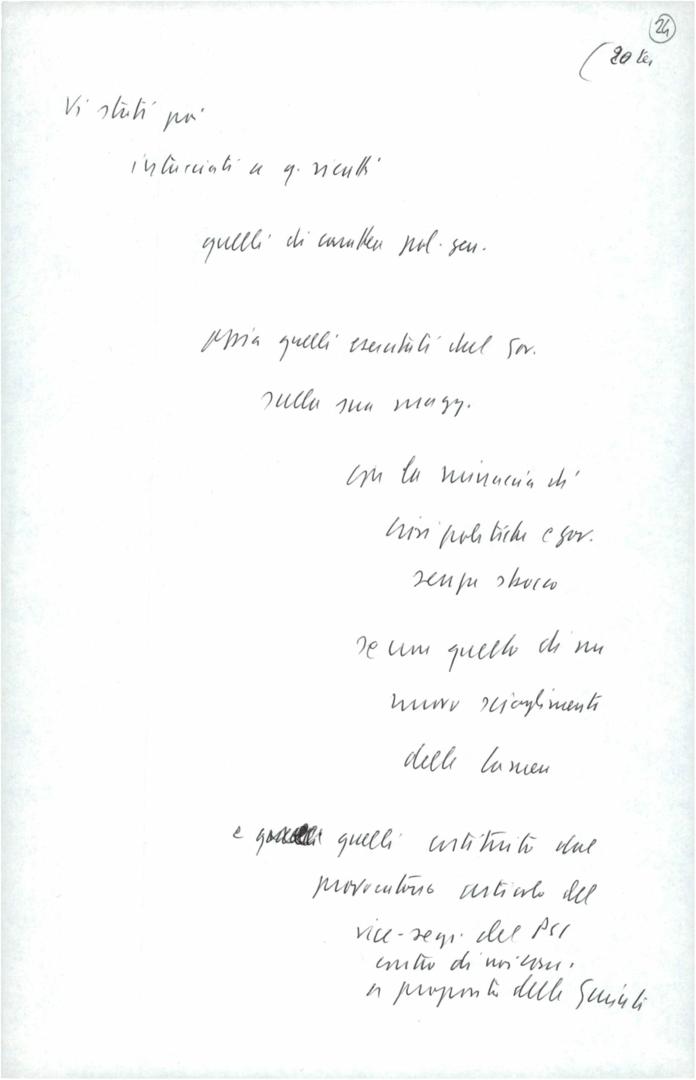 24
(20 ter
Vi stati poi
intrecciati a q. ricatti
quelli di carattere pol. gen.
ossia quelli esercitati dal Gov.
sulla sua magg.
con la minaccia di
crisi politiche e gov.
senza sbocco
se non quello di un
nuovo scioglimento
delle Camere
e quelli costituito dal
provocatorio articolo del
vice-segr. del PSI
contro di noi
a proposito delle Giunte